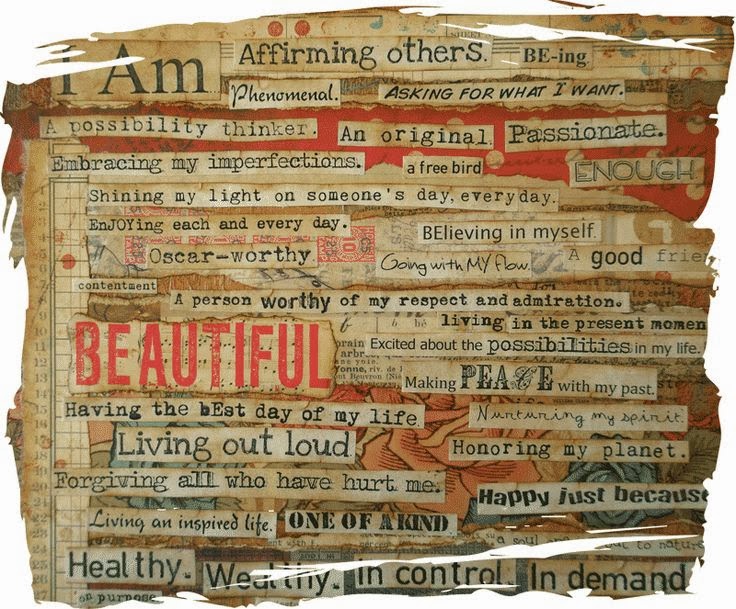 I Am
Affirming others.
BE-ing
Phenomenal.
ASKING FOR WHAT I WANT.
A possibility thinker.
An original.
Passionate.
Embracing my imperfections.
a free bird
ENOUGH
Shining my light on someone's day, everyday.
EnJOYing each and every day.
BElieving in myself.
Oscar-worthy
Going with MY flow.
A good frien
contentment
A person worthy of my respect and admiration.
living in the present momen
BEAUTIFUL
Excited about the possibilities in my life.
Making PEACE with my past.
Having the bEst day of my life.
Nurturing my spirit.
Living out loud
Honoring my planet.
Forgiving all who have hurt me.
Happy just because
Living an inspired life.
ONE OF A KIND
a soul
Healthy.
Wealthy.
In control.
In demand
on purpose